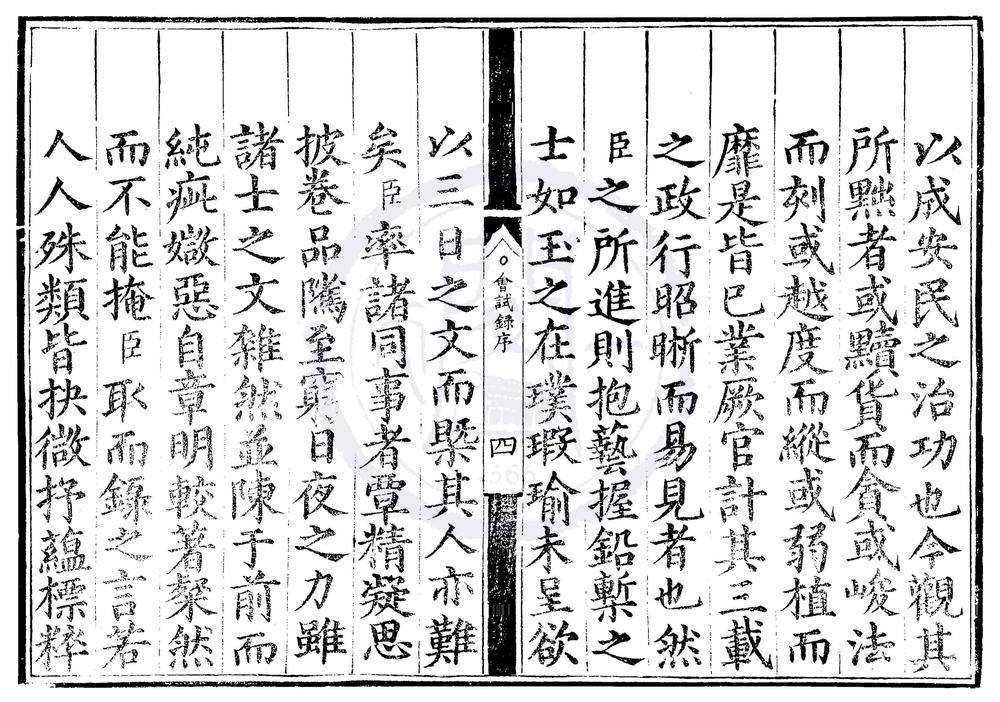 以成安民之治功也今觀其
所黜者或黷貨而貪或峻法
而刻或越度而縱或弱植而
靡是皆已業厥官計其三載
之政行昭晰而易見者也然
臣之所進則抱藝握鉛槧之
士如玉之在璞瑕瑜未呈欲
會試錄序
四
以三日之文而槩其人亦難
矣臣率諸同事者覃精凝思
披卷品隲至窮日夜之力雖
諸士之文雜然並陳于前而
純疵媺惡自章明較著粲然
而不能掩臣取而錄之言若
人人殊類皆抉微抒蘊標粹